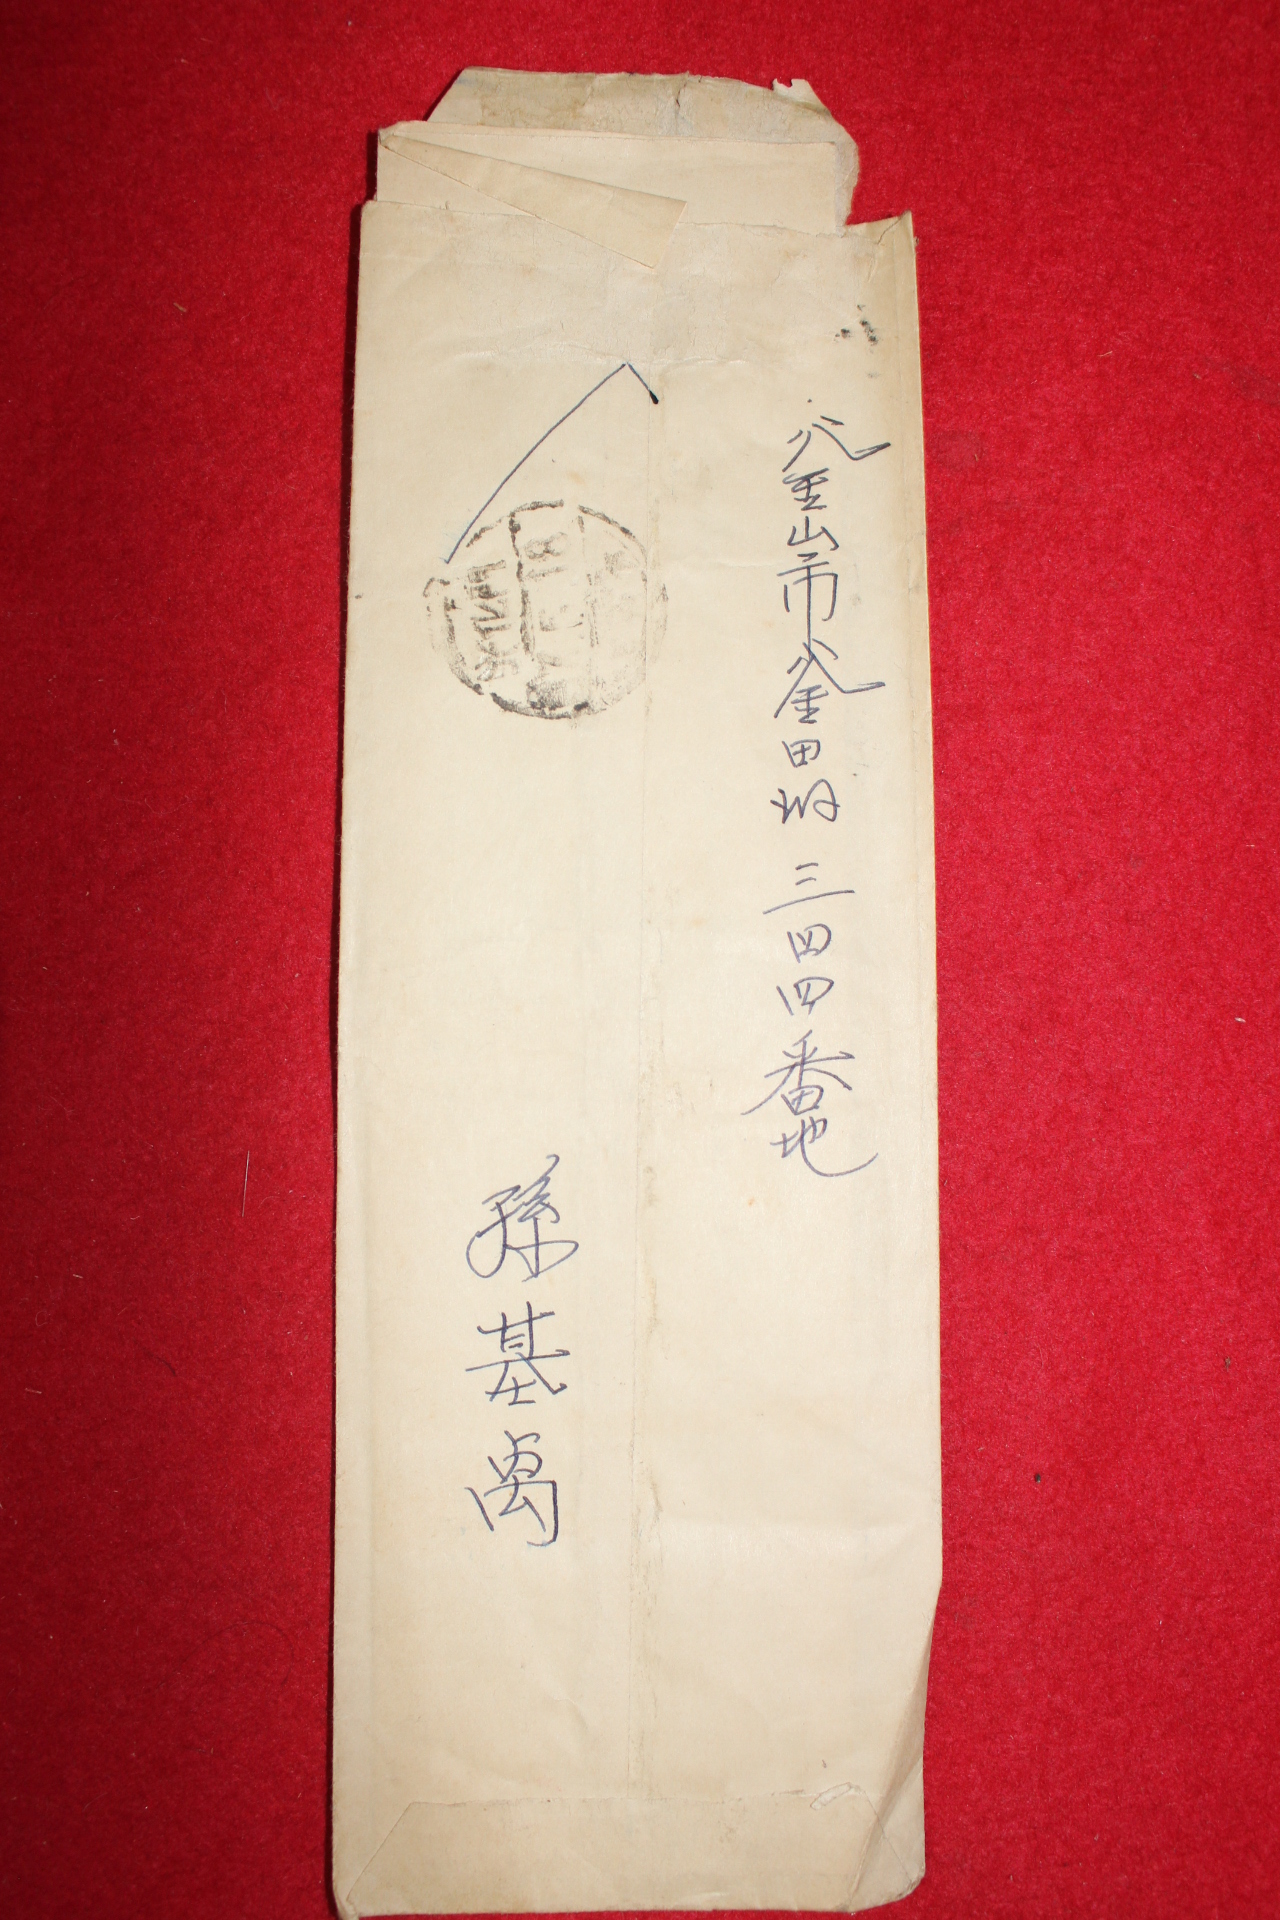 釜山市釜田洞 三四四番地
孫基禹